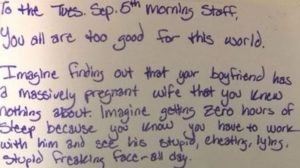 To the Tues. Sep. 5th morning staff,
You all are too good for this world.
Imagine finding out that your boyfriend has
a massively pregnant wife that you knew
nothing about. Imagine getting zero hours of
sleep because you know you have to work
with him and see his stupid, cheating, lying,
stupid freaking face- all day.